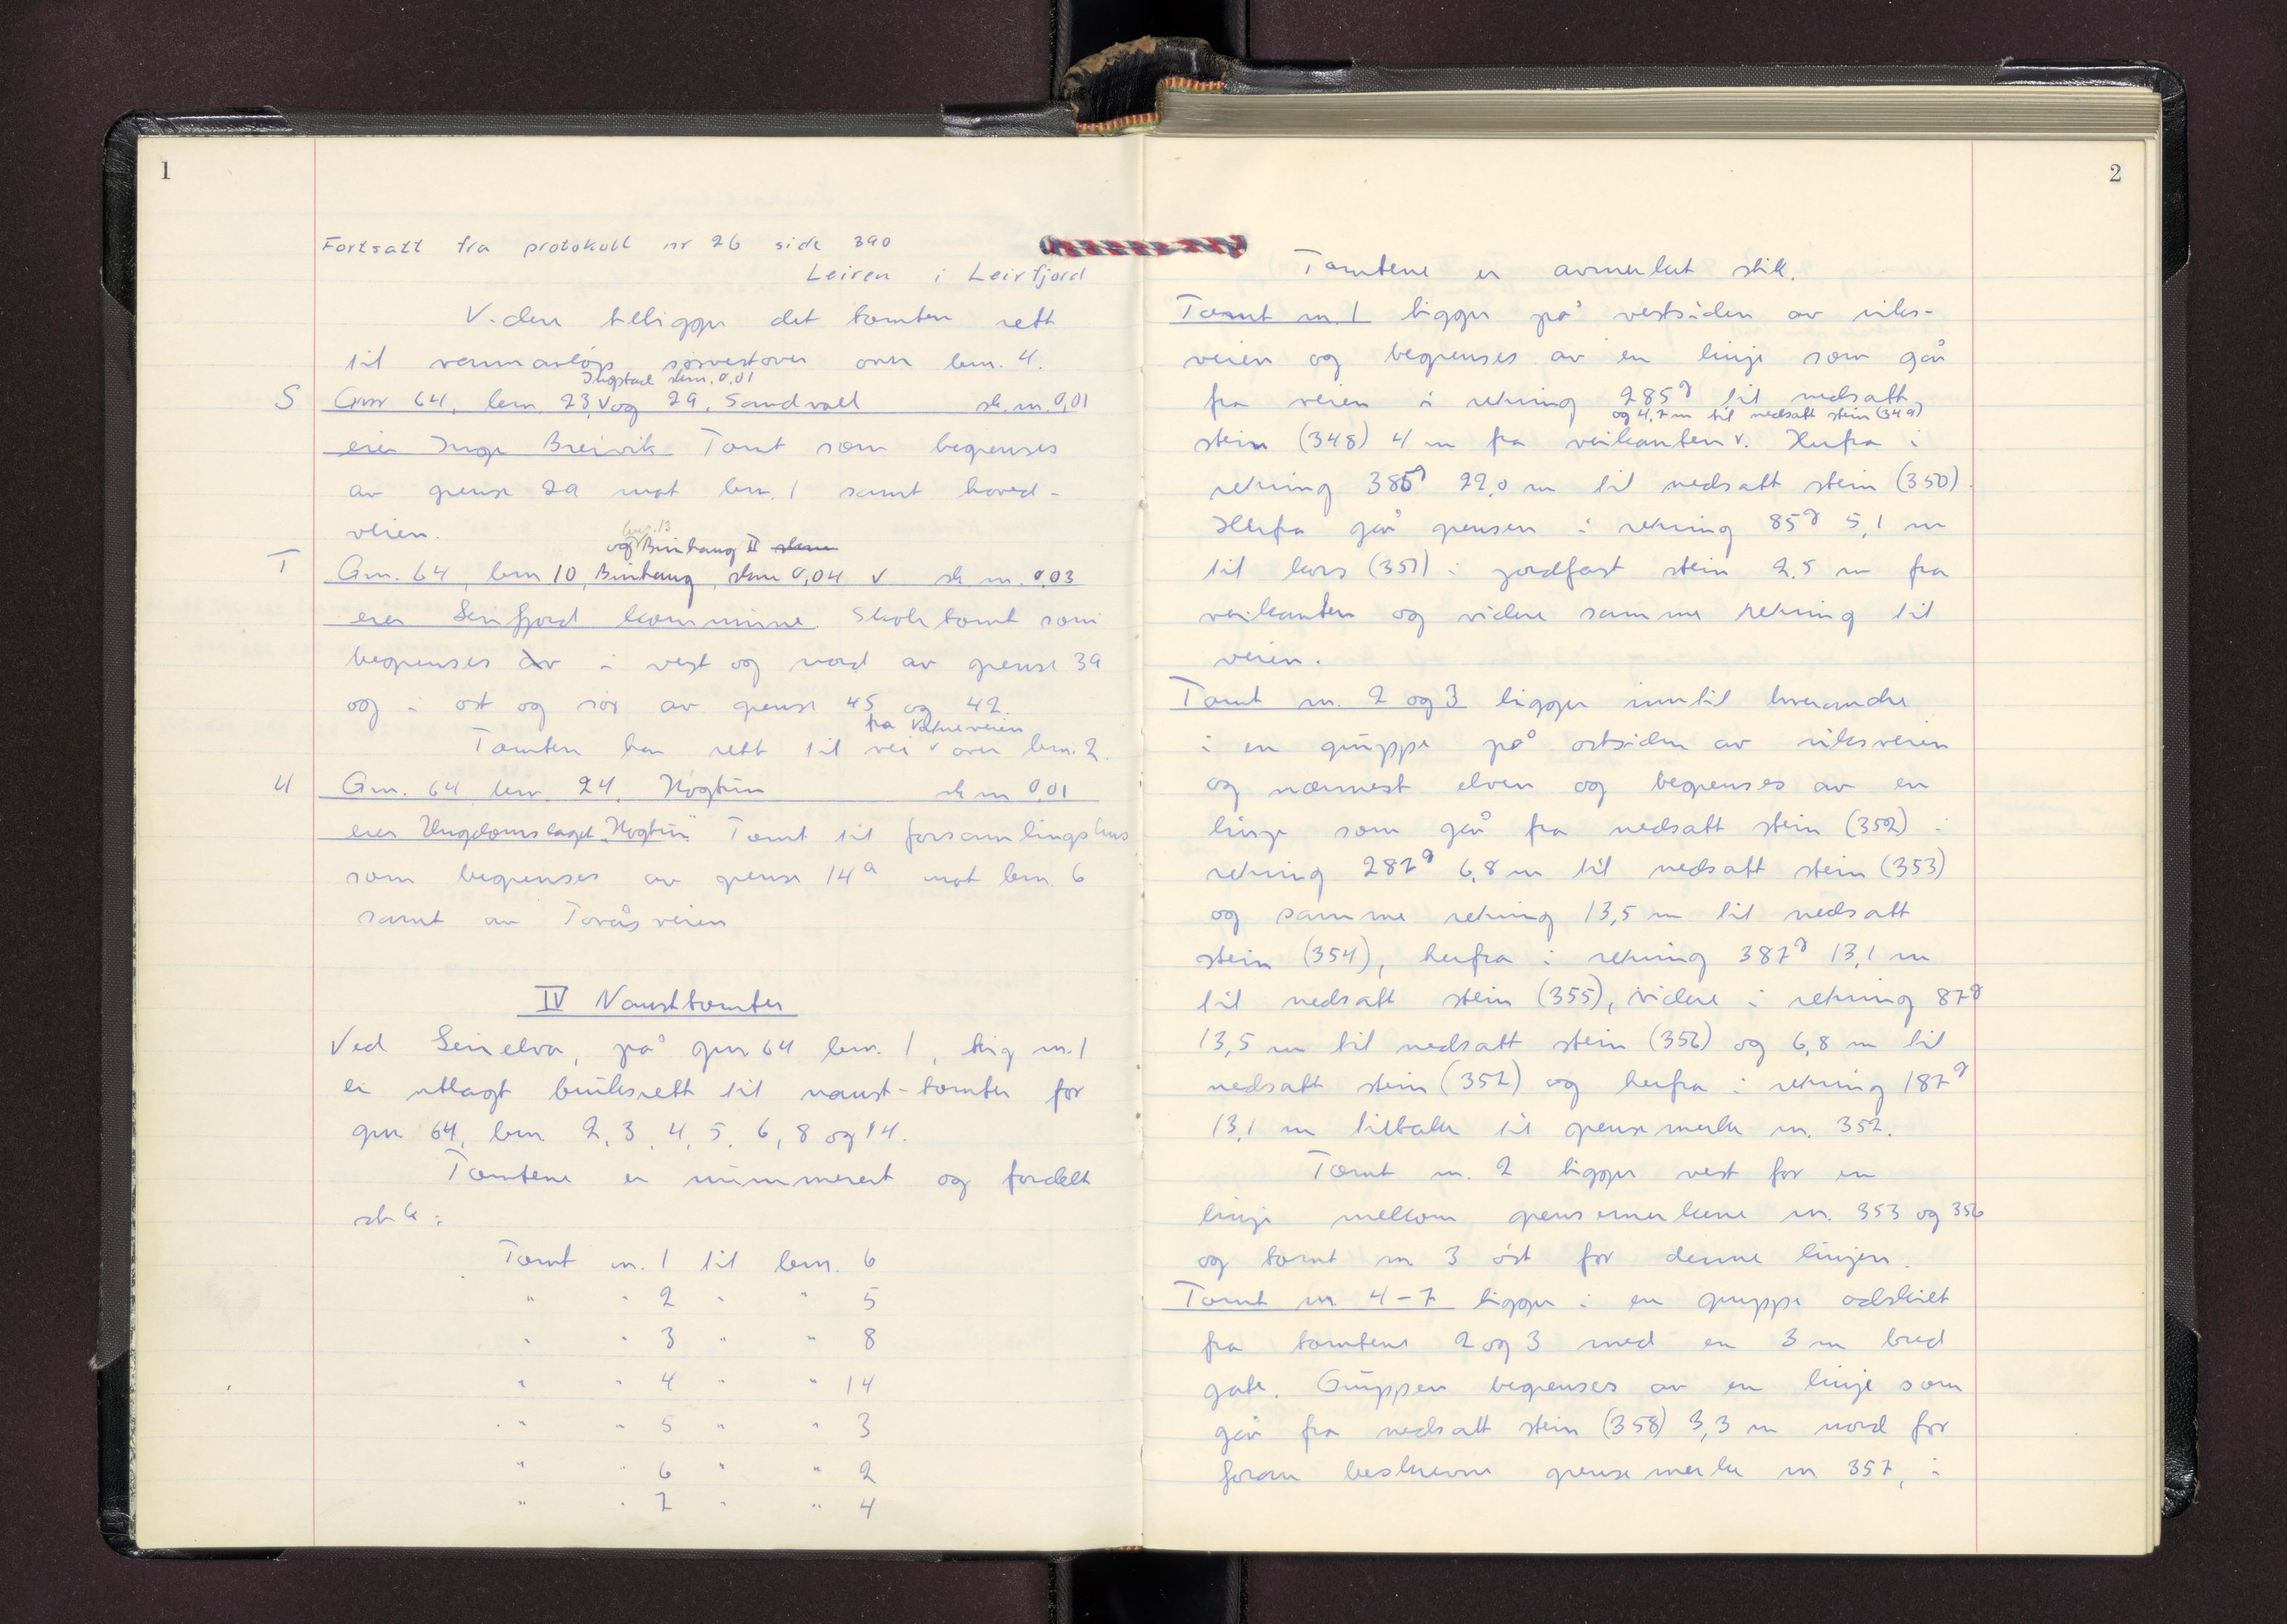 1
Fortsatt fra protokoll nr 26 side 390
Leiren i Leirfjord
Videre tilligger det tomten rett
til vannavløp sørvestover over bnr. 4.
Ingstad skm. 0.01
S Gnr 64, bnr. 23, v og 29, Sandvoll sk.m. 0,01
eier Inge Breivik Tomt som begrenses
av grense 29 mot bnr. 1 samt hoved-
veien.
bnr. 13
og Binhaug II skm
T Gnr. 64, bnr 10, Binhaug, skm 0,04 v sk m. 0.03
eier Leirfjord kommune Skoletomt som
begrenses av i vest og nord av grense 39
og i øst og sør av grense 45 og 42.
fra
Tomten har rett til vei v over bnr. 2.
U Gnr. 64 bnr. 24. Høgtun sk m 0,01
eier Ungdomslaget "Høgtun" Tomt til forsamlingshus
som begrenses av grense 14a mot bnr. 6
samt av Toråsveien
IV Nausttomter
Ved Leirelva, på gnr 64 bnr. 1, teig nr. 1
er utlagt bruksrett til naust-tomter for
gnr 64, bnr. 2, 3, 4, 5, 6, 8 og 14.
Tomtene er nummerert og fordelt
slik:
Tomt nr. 1 til bnr. 6
" " 2 " " 5
" " 3 " " 8
" " 4 " " 14
" " 5 " " 3
" " 6 " " 2
" " 7 " " 4
2
Tomtene er avmerket slik.
Tomt nr. 1 ligger på vestsiden av riks-
veien og begrenses av en linje som går
fra veien i retning 285g til nedsatt
og 4,7 m til nedsatt stein (349)
stein (348) 4 m fra veikanten v. Herfra i
retning 385g 22,0 m til nedsatt stein (350).
Herfra går grensen i retning 85g 5,1 m
til kors (351) i jordfast stein 2,5 m fra
veikanten og videre samme retning til
veien.
Tomt nr. 2 og 3 ligger inntil hverandre
i en gruppe på østsiden av riksveien
og nærmest elven og begrenses av en
linje som går fra nedsatt stein (352) i
retning 287g 6,8 m til nedsatt stein (353)
og samme retning 13,5 m til nedsatt
stein (354), herfra i retning 387g 13,1 m
til nedsatt stein (355), videre i retning 87g
13,5 m til nedsatt stein (356) og 6,8 m til
nedsatt stein (357) og herfra i retning 187g
13,1 m tilbake til grensemerke nr. 352.
Tomt nr. 2 ligger vest for en
linje mellom grensemerkene nr. 353 og 356
og tomt nr 3 øst for denne linjen.
Tomt nr. 4-7 ligger i en gruppe adskilt
fra tomtene 2 og 3 med en 3 m bred
gate. Gruppen begrenses av en linje som
går fra nedsatt stein (358) 3,3 m nord for
foran beskrevne grensemerke nr 357, i